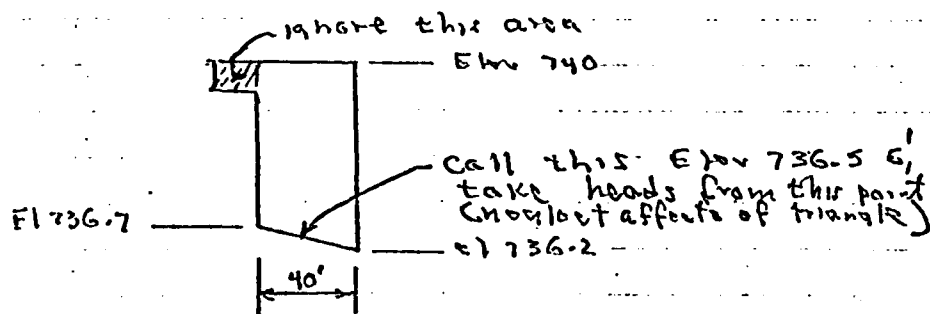 ignore this area
Elev 740
call this Elev 736.5 &
take heads from this point
(neglect affects of triangle)
El 736.7
el 736.2
40'